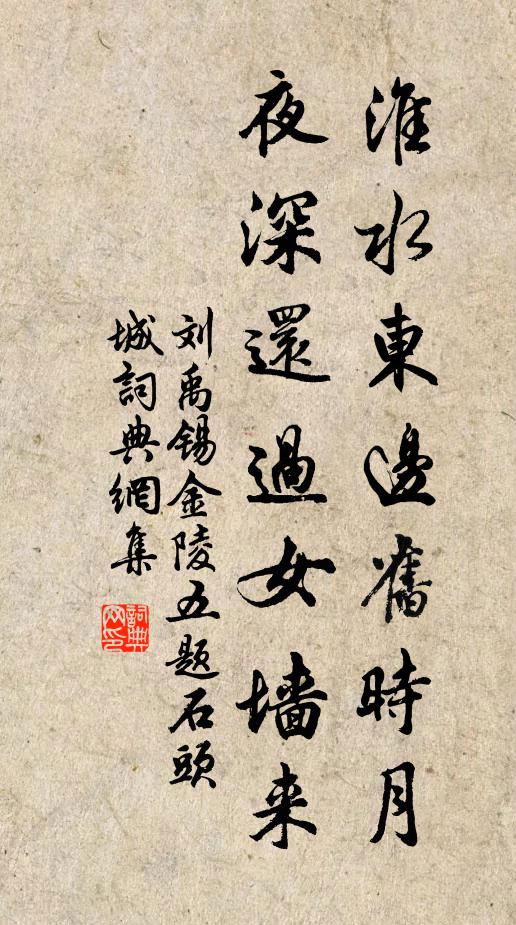 淮水東邊舊時月
夜深還過女墙来
刘禹锡金陵五题石頭
城詞典網集
詞典
网印